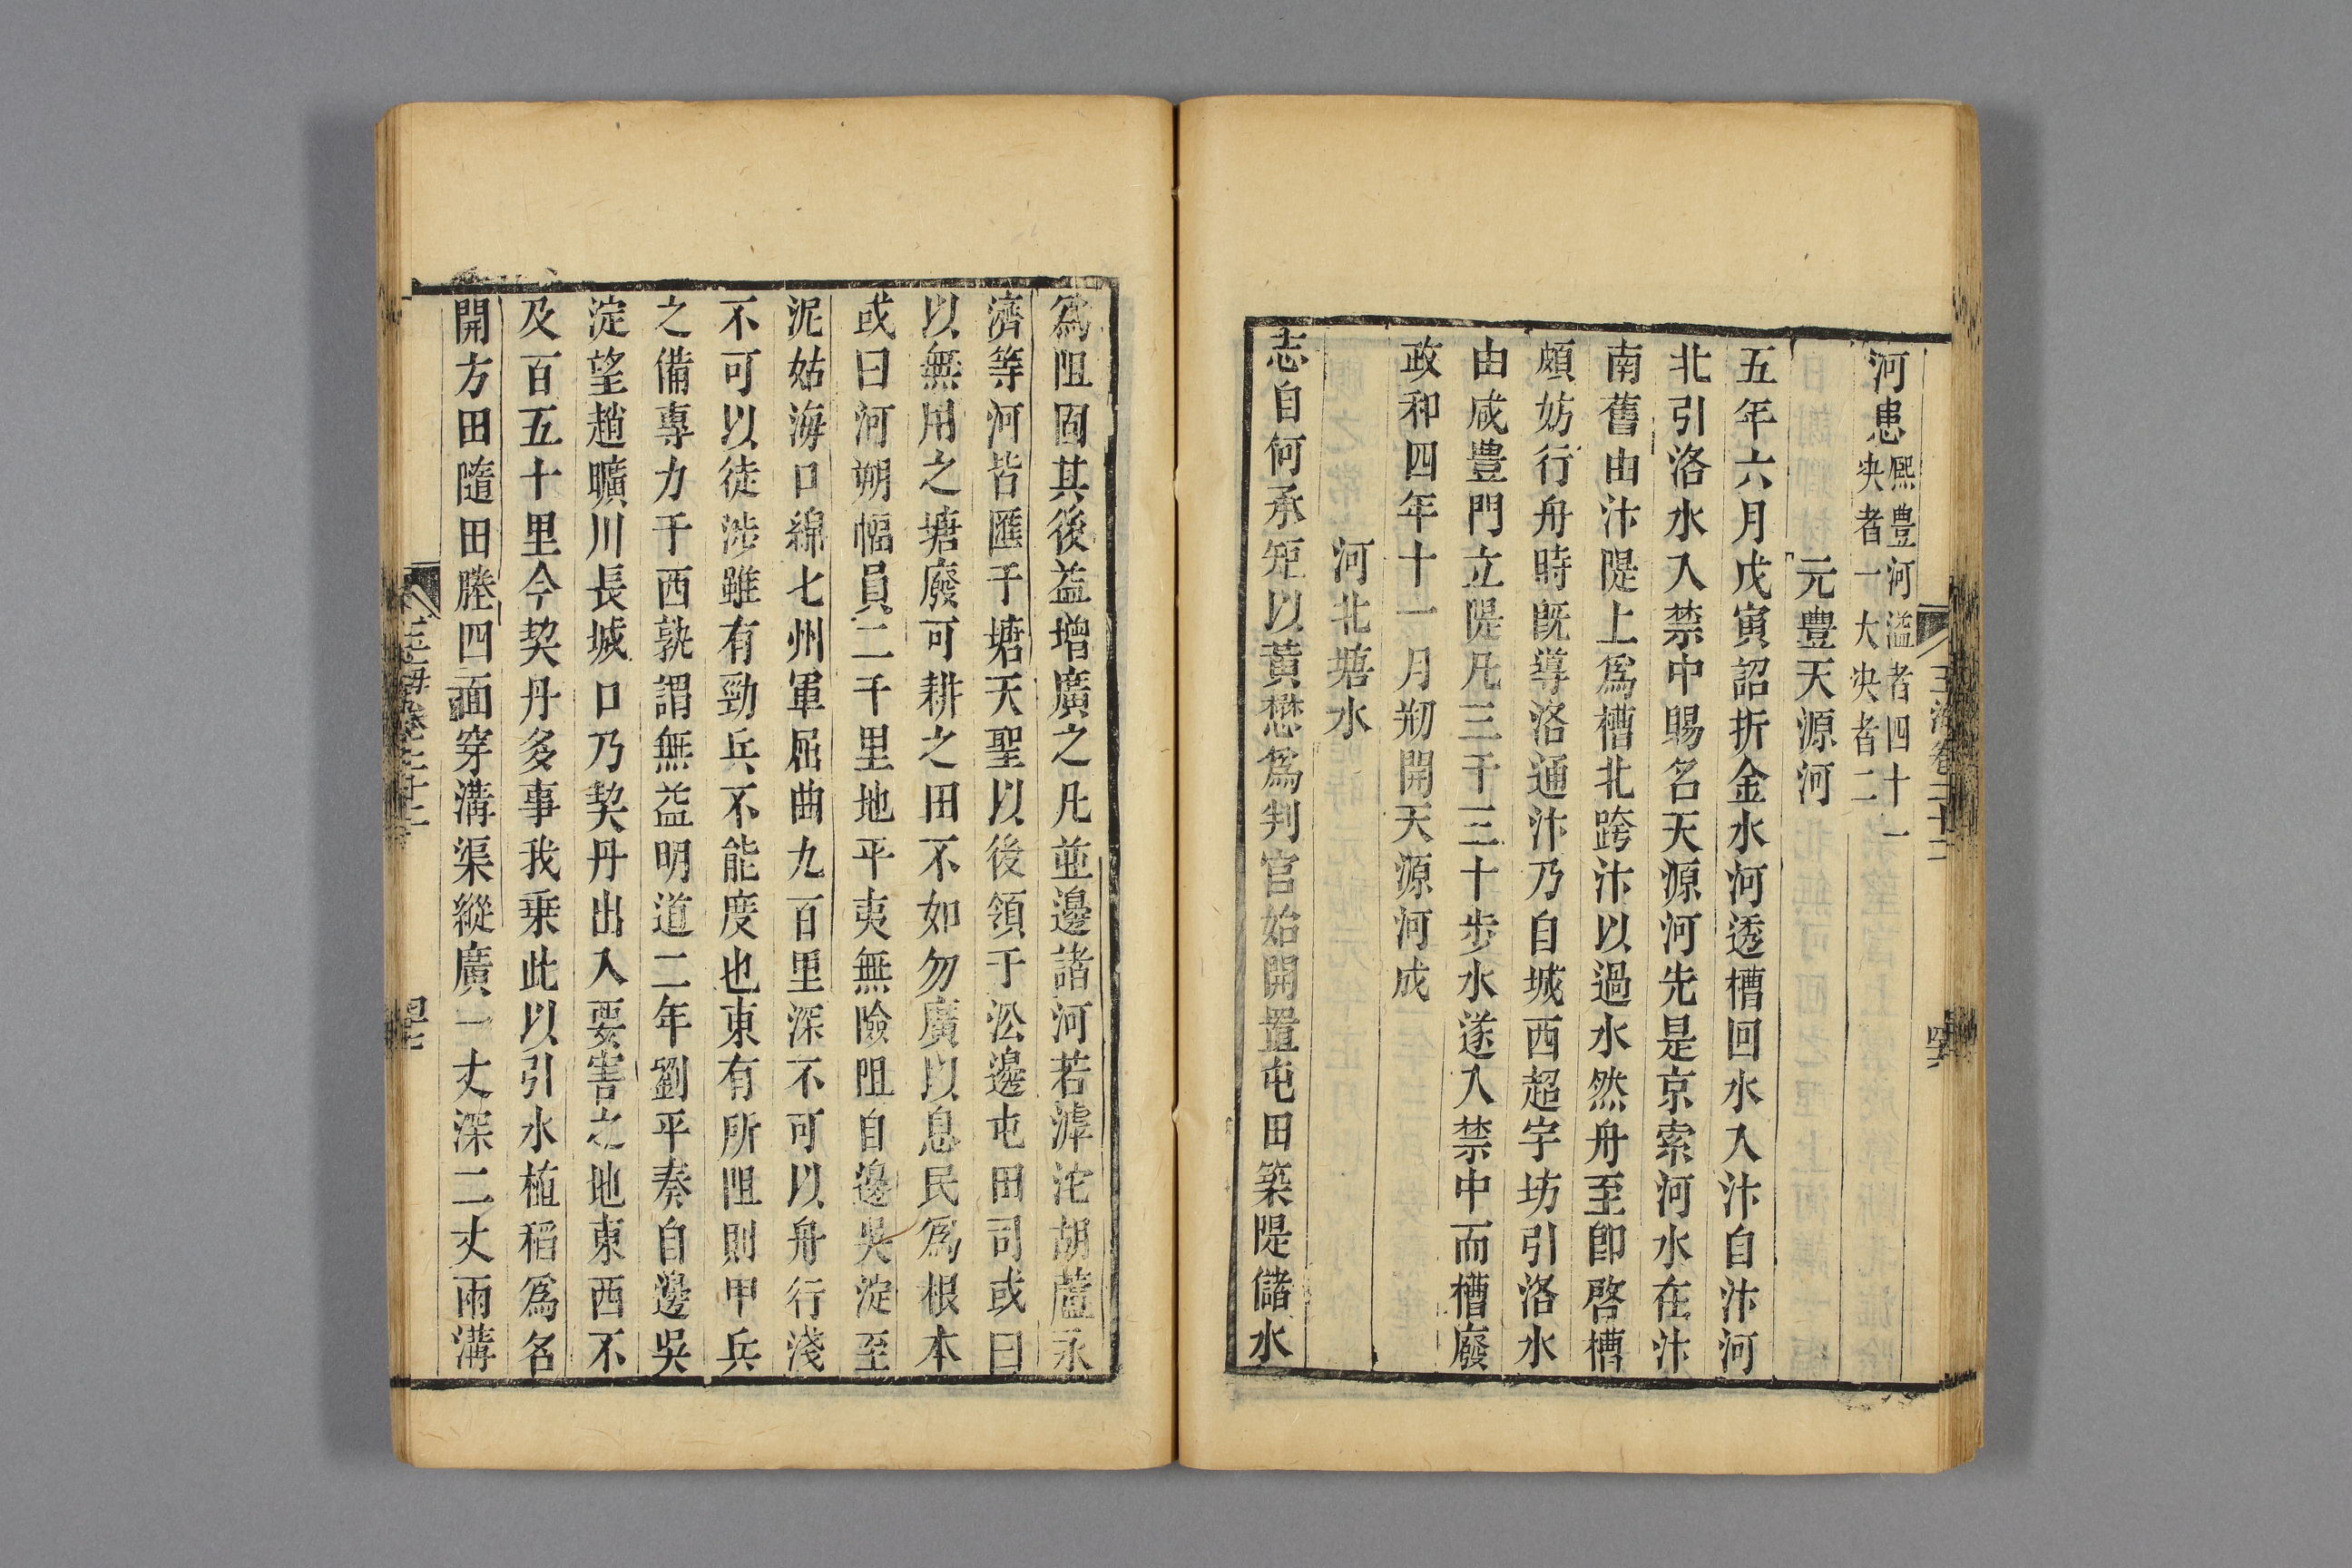 河患熙豊河溢者四十一
決者一大決者二
元豊天源河
五年六月戊寅詔折金水河透槽回水入汴自汴河
北引洛水入禁中賜名天源河先是京索河水在汴
南舊由汴隄上爲槽北跨汴以過水然舟至卽啓槽
頗妨行舟時旣導洛通汴乃自城西超字坊引洛水
由咸豊門立隄凡三千三十步水遂入禁中而槽廢
政和四年十一月剏開天源河成
河北塘水
志自何承矩以黃懋爲判官始開置屯田築隄儲水
爲阻固其後益增廣之凡並邊諸河若滹沱胡蘆永
濟等河皆匯于塘天聖以後領于㳂邊屯田司或曰
以無用之塘廢可耕之田不如勿廣以息民爲根本
或曰河朔幅員二千里地平夷無險阻自邊吳淀至
泥姑海口綿七州軍屈曲九百里深不可以舟行淺
不可以徒涉雖有勁兵不能度也東有所阻則甲兵
之備專力于西孰謂無益明道二年劉平奏自邊吳
淀望趙曠川長城口乃契丹出入要害之地東西不
及百五十里今契丹多事我乗此以引水植稻爲名
開方田隨田塍四面穿溝渠縱廣一丈深二丈兩溝